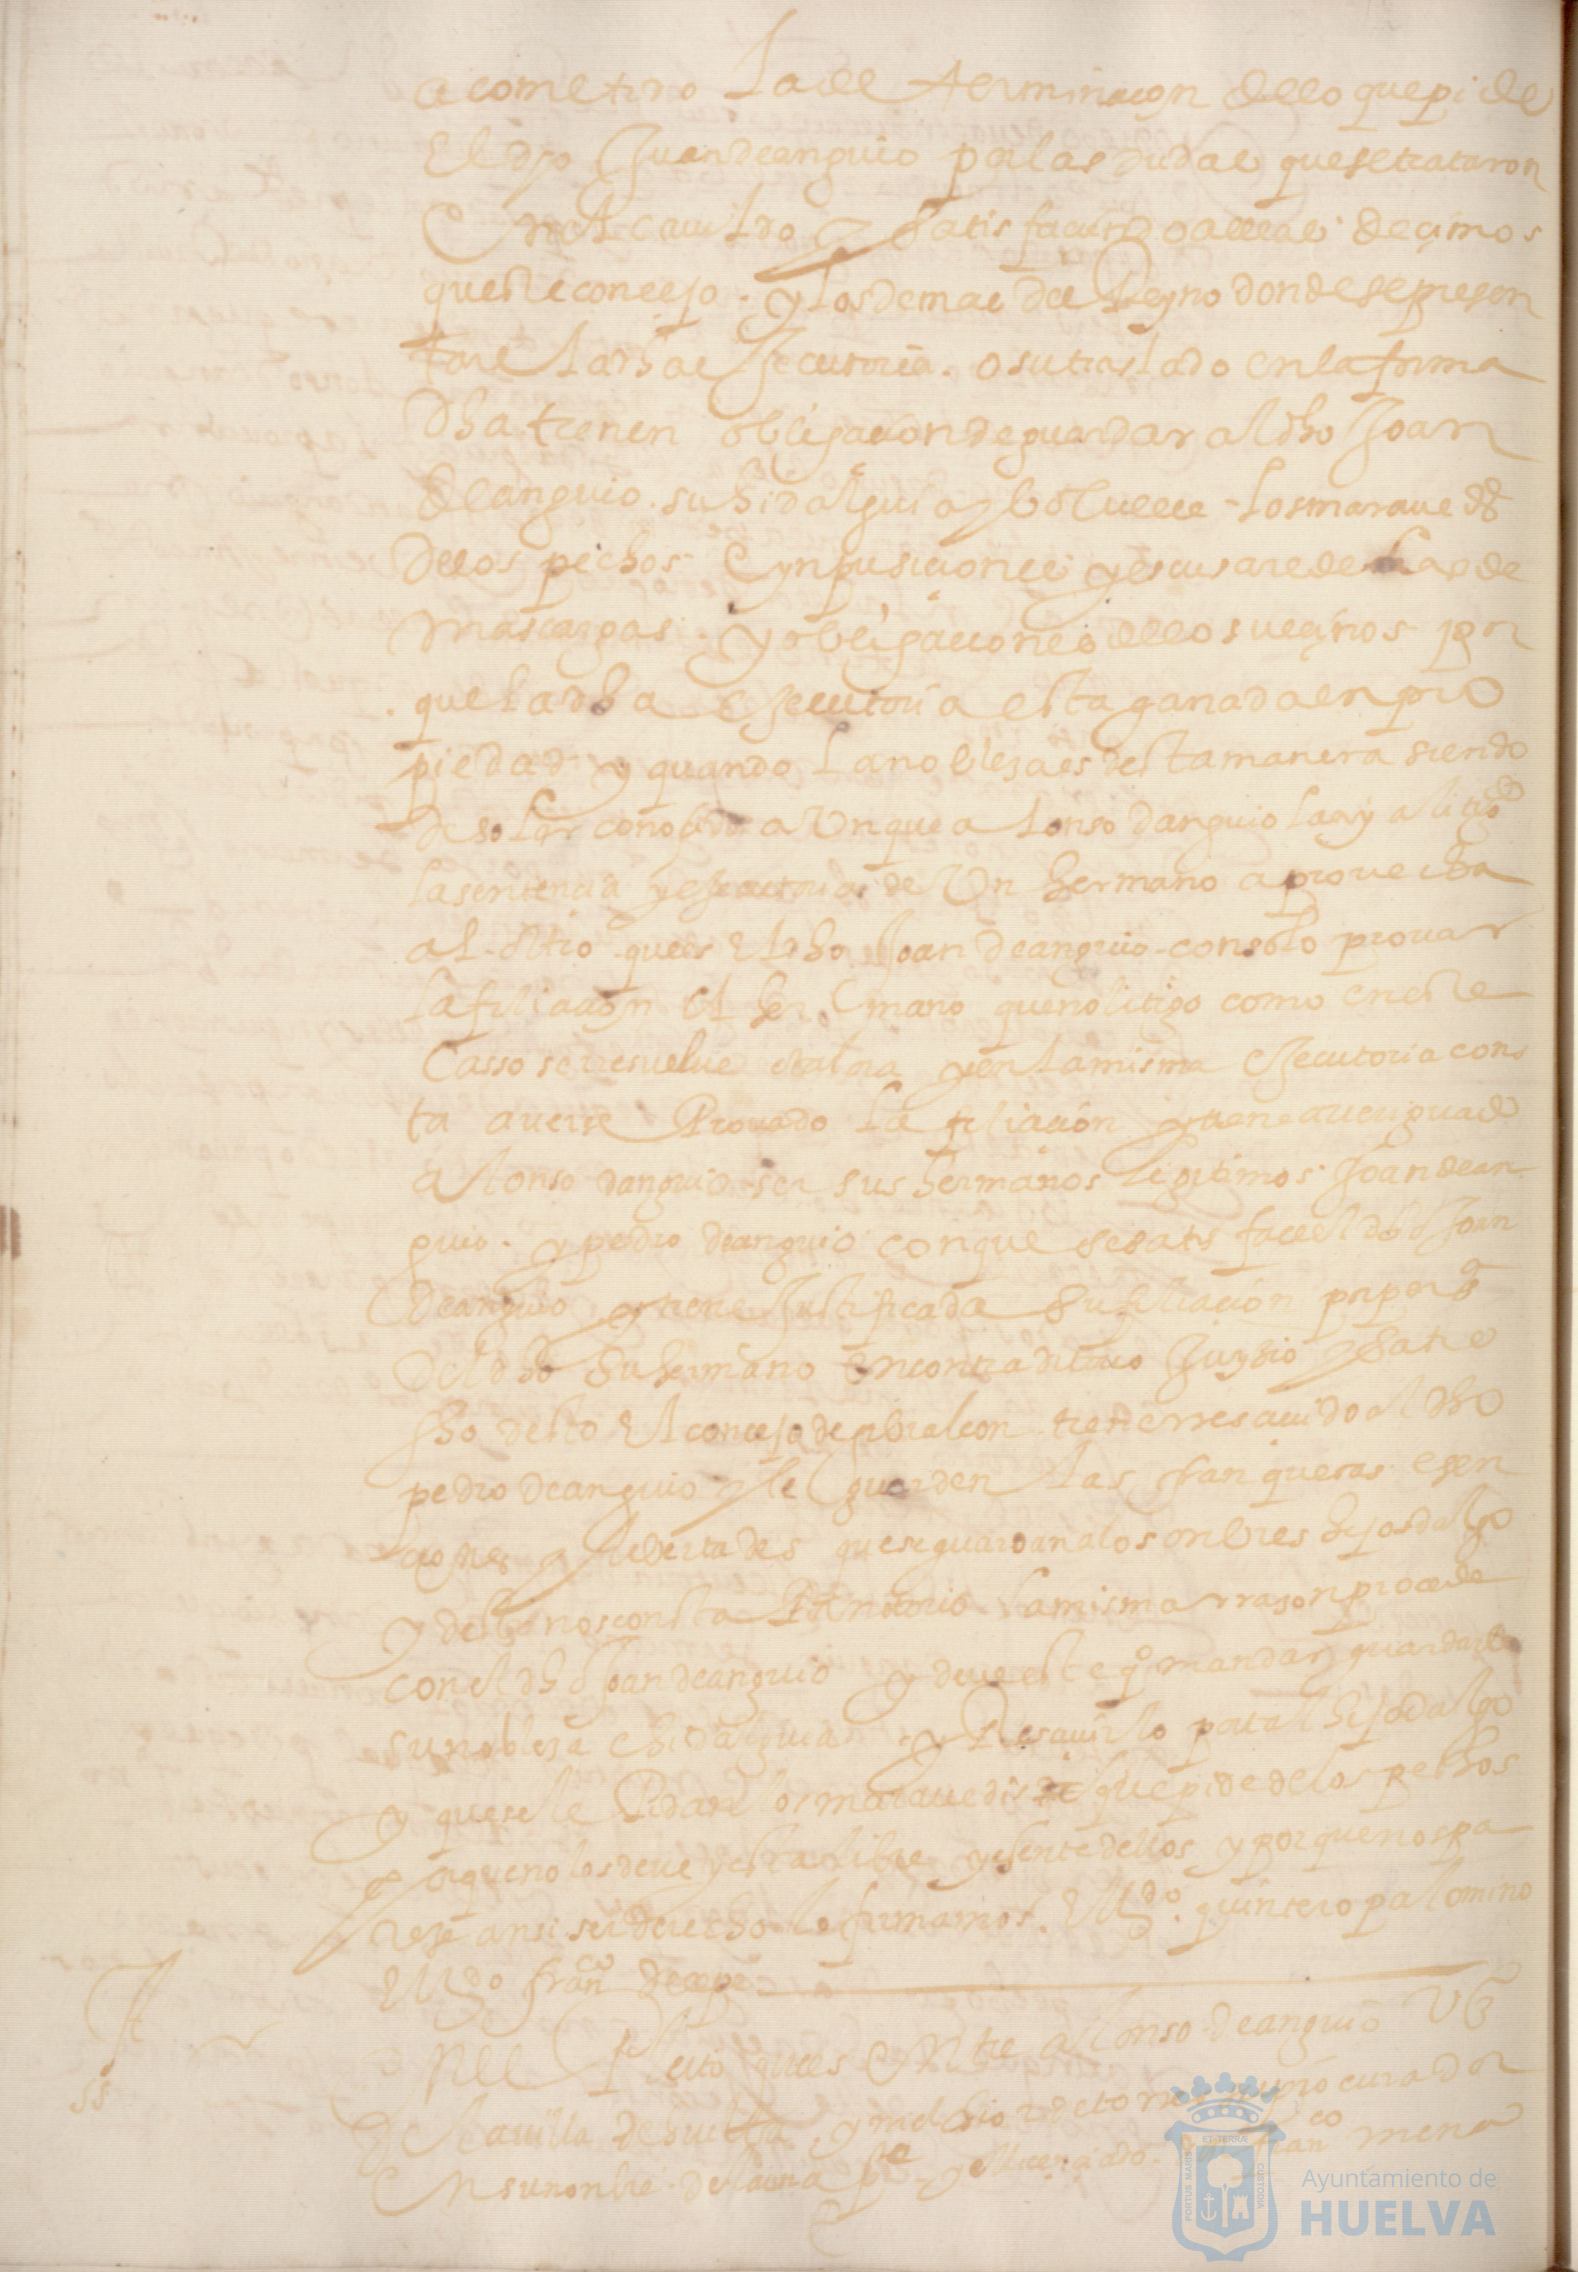 a cometido la determinacion dello que pide
El dho Juan de anguio por las dudas que se trataron
En el cauildo y satisfaciendo a ellas decimos
que este concejo y los demas del Reyno donde se presen
tare la dha executoria o su traslado en la forma
dha tienen obligacion de guardar al dho Joan
de anguio su hidalguia y bolvelle los maravedis
de los pechos E ynpusiciones y escusarle de las de
mas cargas y obligaciones de los vecinos por
que la dha executoria esta ganada en pro
piedad y quando la nobleza es desta manera siendo
de solar conocido aunque alonso danguio la aya litigado
la sentencia y executoria de Un hermano aprovecha
al otro que es El dho Joan de anguio con solo provar
la filiacion El hermano que no litigo como en este
Casso se resuelve y en la misma executoria cons
ta averse Provado la filiacion y tiene averiguado
alonso danguio ser sus hermanos legitimos Joan de an
guio y pedro de anguio con que se satisface El dho Joan
de anguio y tiene Justificada su filiacion
del dho su hermano En contraditorio Juyzio y satisfe
cho desto El concejo de gibraleon tiene rresciuido al dho
pedro de anguio y le guarden las franquezas esen
ciones y libertades que se guardan a los onbres hijosdalgo
y desto nos consta la misma rrason procede
con el dho Joan de anguio y deve este qo mandar guardarle
su nobleza E hidalguia y Resciuirlo por tal hijodalgo
y que se le los maravedis que pide de los pechos
porque no los deve y esta libre y esento dellos y porque nos pa
rese ansi ser derecho lo firmamos. El Ldo. quintero palomino
El Ldo franco
En El Pleito que es Entre alonso de anguio vo
de la villa de huelva y melchior de torres su procurador
En su nonbre de la una pte y el licenciado franco mena
ET TERRAE
PORTUS MARIS
CUSTODIA
Ayuntamiento de
HUELVA